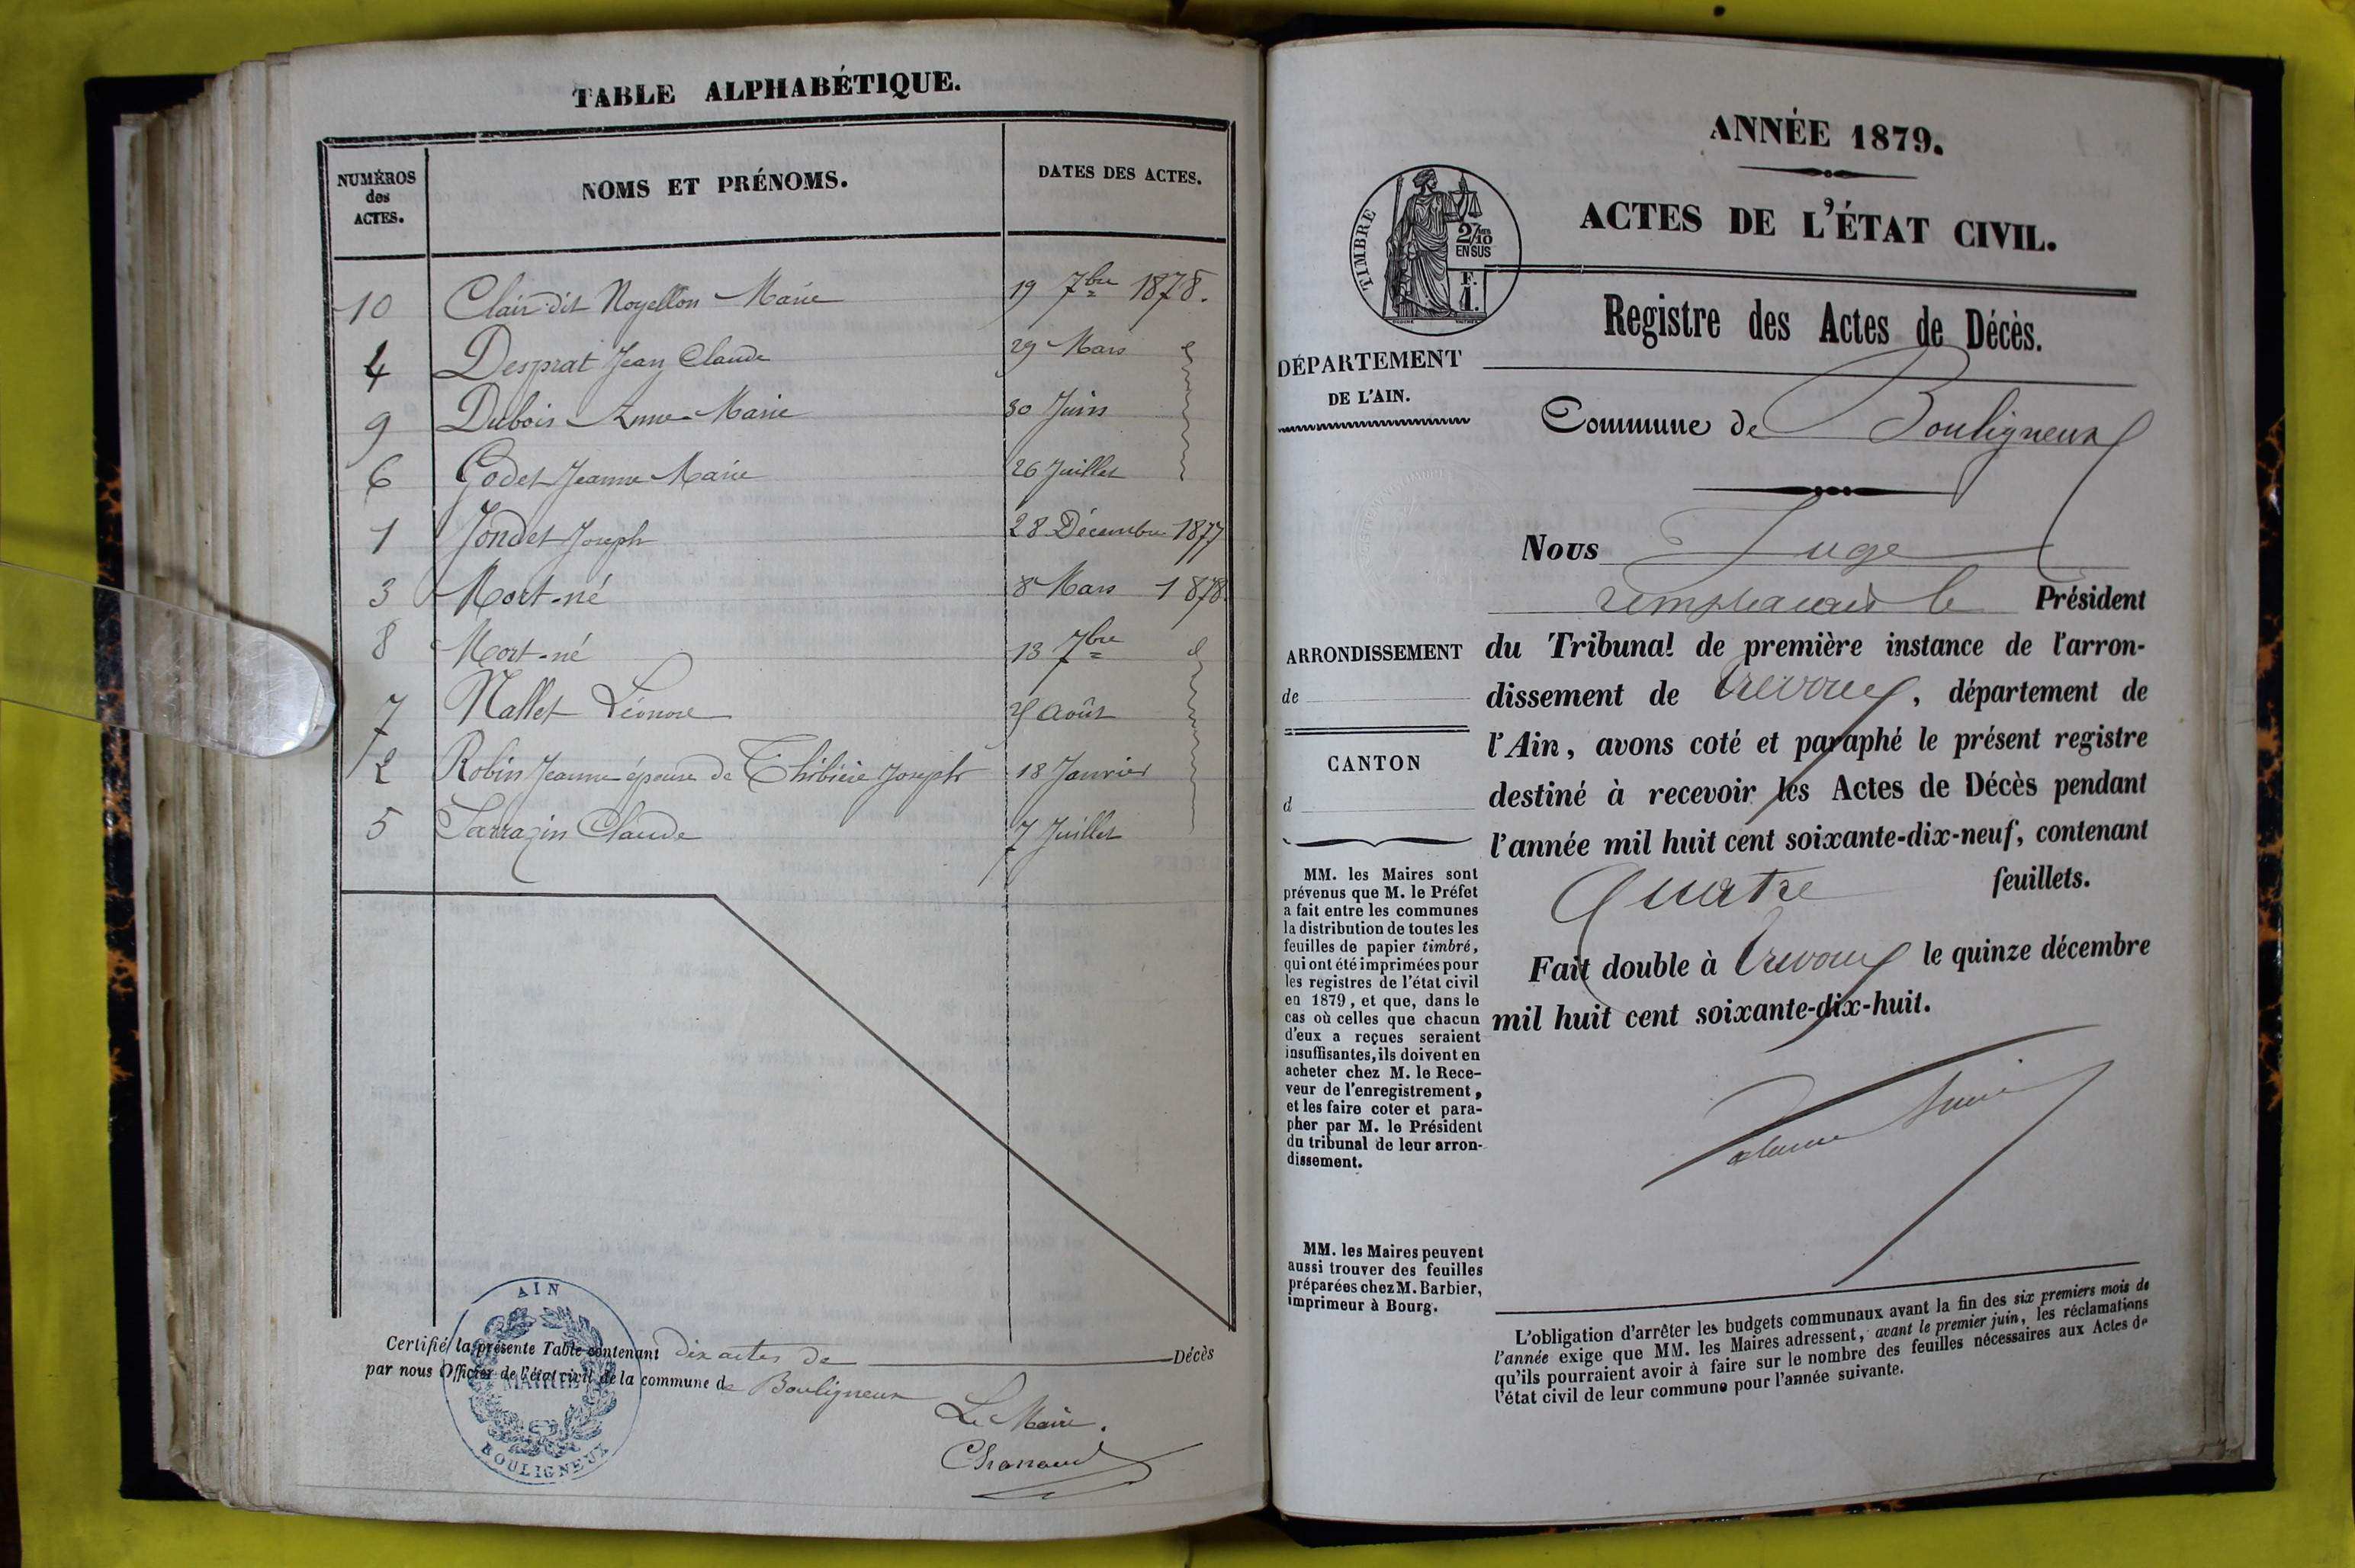 TABLE ALPHABÉTIQUE.
NUMÉROS des ACTES. NOMS ET PRÉNOMS. DATES DES ACTES.
10 Clair dit Noyellon Marie 19 7bre 1878.
4 Desprat Jean Claude 29 Mars d
9 Dubois Anne-Marie 30 Juin
6 Godet Jeanne Marie 26 Juillet
1 Jondet Joseph 28 Décembre 1877
3 Mort-né 8 Mars 1878.
8 Mort-né 13 7bre d
7 Nallet Léonore août
2 Robin Jeanne épouse de Thibière Joseph 18 Janvier
5 Sarrazin Claude 7 Juillet
Certifié la présente Table contenant dix actes de Décès
par nous Officier de l'état civil de la commune de Bouligneux
Le Maire.
Chanaud
AIN
MAIRIE
BOULIGNEUX
ANNÉE 1879.
ACTES DE L'ÉTAT CIVIL.
TIMBRE
2/10 EN SUS
F. 1.
Registre des Actes de Décès.
DÉPARTEMENT
DE L'AIN.
Commune de Bouligneux
Nous Juge
remplaçant le Président
ARRONDISSEMENT
de
CANTON
d
du Tribunal de première instance de l'arron-
dissement de Trévoux, département de
l'Ain, avons coté et paraphé le présent registre
destiné à recevoir les Actes de Décès pendant
l'année mil huit cent soixante-dix-neuf, contenant
Quatre feuillets.
Fait double à Trévoux le quinze décembre
mil huit cent soixante-dix-huit.
MM. les Maires sont
prévenus que M. le Préfet
a fait entre les communes
la distribution de toutes les
feuilles de papier timbré,
qui ont été imprimées pour
les registres de l'état civil
en 1879, et que, dans le
cas où celles que chacun
d'eux a reçues seraient
insuffisantes, ils doivent en
acheter chez M. le Rece-
veur de l'enregistrement,
et les faire coter et para-
pher par M. le Président
du tribunal de leur arron-
dissement.
MM. les Maires peuvent
aussi trouver des feuilles
préparées chez M. Barbier,
imprimeur à Bourg.
L'obligation d'arrêter les budgets communaux avant la fin des six premiers mois de
l'année exige que MM. les Maires adressent, avant le premier juin, les réclamations
qu'ils pourraient avoir à faire sur le nombre des feuilles nécessaires aux Actes de
l'état civil de leur commune pour l'année suivante.